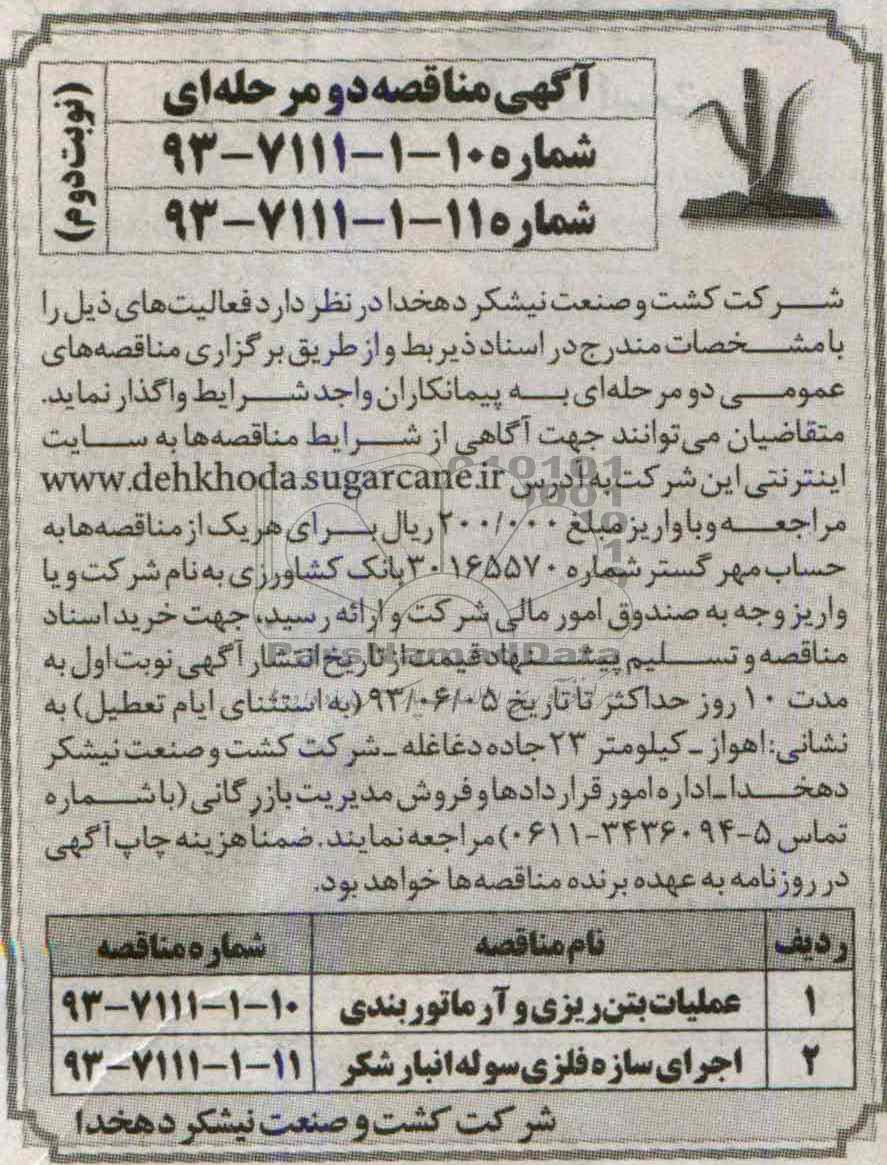 آگهی مناقصه دو مرحله‌ای
شماره ۱۰-۱-۷۱۱۱-۹۳
شماره ۱۱-۱-۷۱۱۱-۹۳
(نوبت دوم)
شرکت کشت و صنعت نیشکر دهخدا در نظر دارد فعالیت‌های ذیل را
با مشخصات مندرج در اسناد ذیربط و از طریق برگزاری مناقصه‌های
عمومی دو مرحله‌ای به پیمانکاران واجد شرایط واگذار نماید.
متقاضیان می‌توانند جهت آگاهی از شرایط مناقصه‌ها به سایت
اینترنتی این شرکت به آدرس www.dehkhoda.sugarcane.ir
مراجعه و با واریز مبلغ ۲۰۰/۰۰۰ ریال برای هر یک از مناقصه‌ها به
حساب مهر گستر شماره ۳۰۱۶۵۵۷۰ بانک کشاورزی به نام شرکت و یا
واریز وجه به صندوق امور مالی شرکت و ارائه رسید، جهت خرید اسناد
مناقصه و تسلیم پیشنهاد قیمت از تاریخ انتشار آگهی نوبت اول به
مدت ۱۰ روز حداکثر تا تاریخ ۹۳/۰۶/۰۵ (به استثنای ایام تعطیل) به
نشانی: اهواز ـ کیلومتر ۲۳ جاده دغاغله ـ شرکت کشت و صنعت نیشکر
دهخدا ـ اداره امور قراردادها و فروش مدیریت بازرگانی (با شماره
تماس ۵-۳۴۳۶۰۹۴-۰۶۱۱) مراجعه نمایند. ضمناً هزینه چاپ آگهی
در روزنامه به عهده برنده مناقصه‌ها خواهد بود.
ردیف نام مناقصه شماره مناقصه
۱ عملیات بتن ریزی و آرماتوربندی ۱۰-۱-۷۱۱۱-۹۳
۲ اجرای سازه فلزی سوله انبار شکر ۱۱-۱-۷۱۱۱-۹۳
شرکت کشت و صنعت نیشکر دهخدا
ParsNamadData